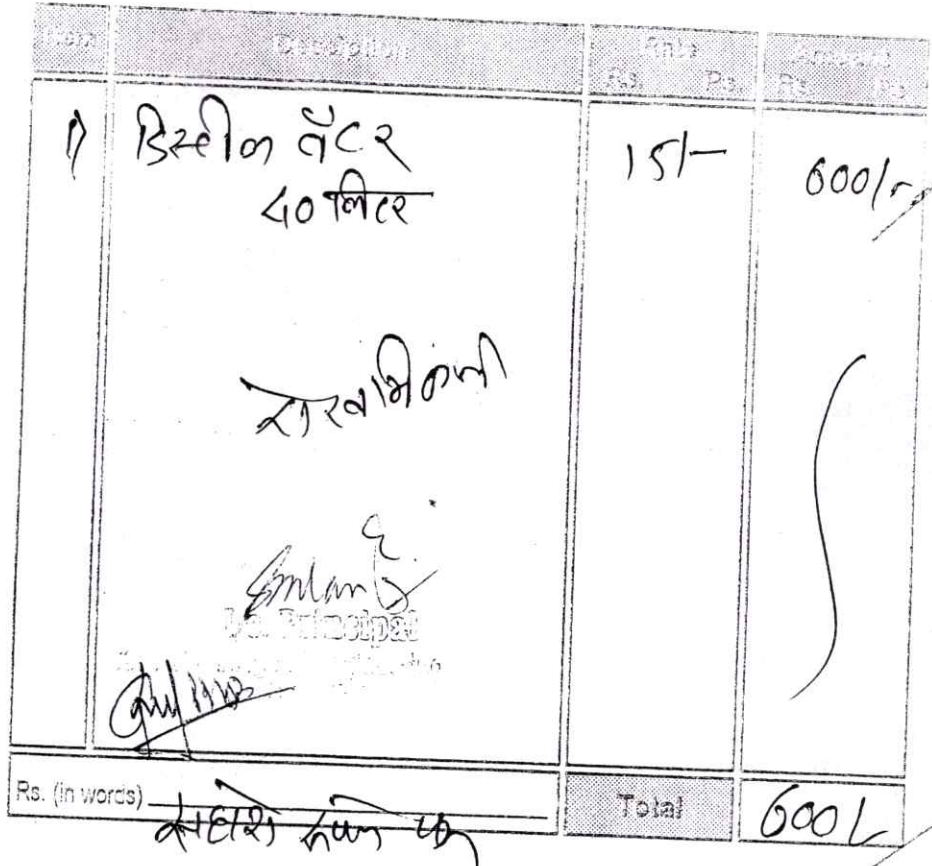 Item Description Rate Rs. Ps. Amount Rs. Ps.
1) डिस्टील वॅटर 15/- 600/-
४० लिटर
I/c. Principal
Rs. (in words) सहाशे रुपये Total 600/-